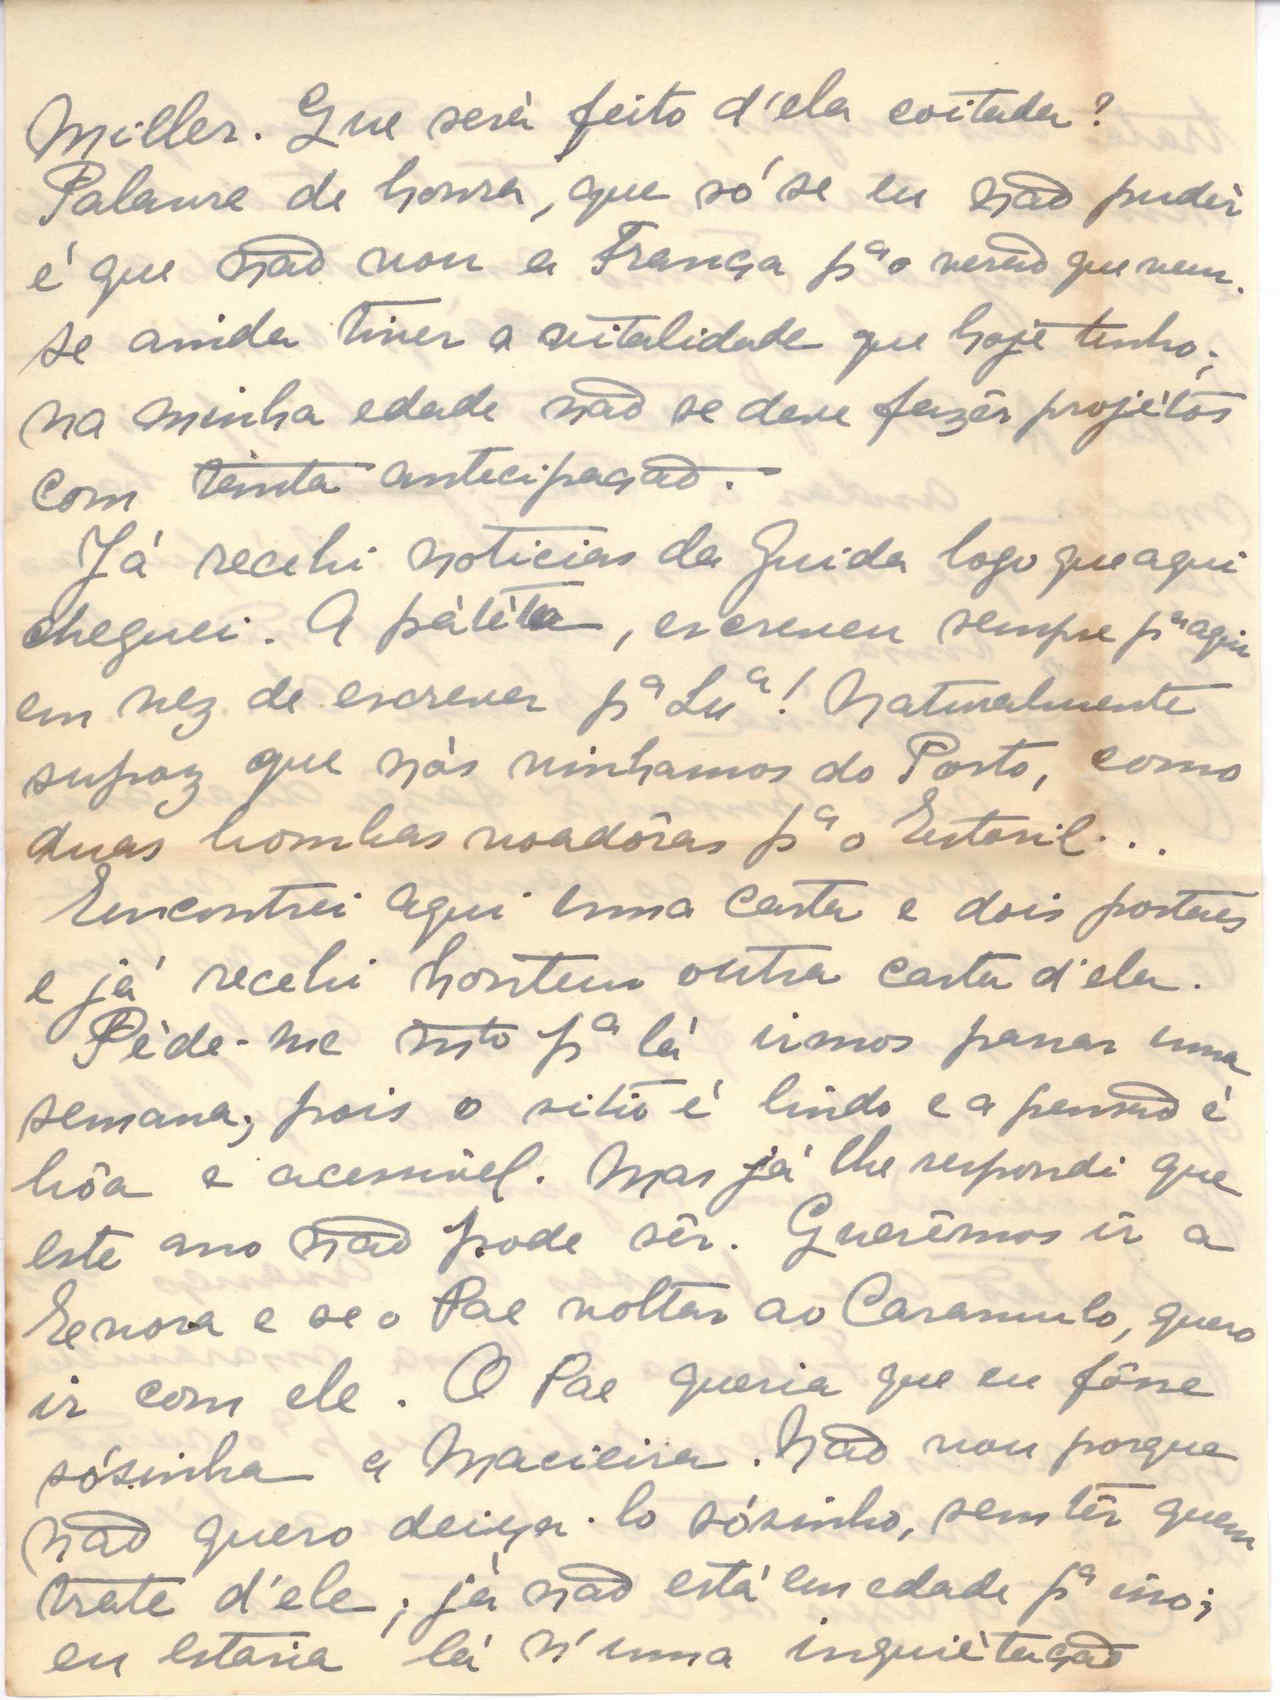 Miller. Que será feito d'ela coitada?
Palavra de honra, que só se eu não pudér
é que não vou a França pª o verão que vem.
se ainda tiver a vitalidade que hoje tenho;
na minha edade não se deve fazêr projétos
com tanta antecipação. -
Já recebi noticias da Guida logo que aqui
cheguei. A pátéta, escreveu sempre pª aqui
em vez de escrever pª Luª! Naturalmente
supoz que nós vinhamos do Porto, como
duas bombas voadôras pª o Estoril...
Encontrei aqui uma carta e dois postaes
e já recebi hontem outra carta d'ela.
Péde-me mto pª lá irmos passar uma
semana; pois o sitio é lindo e a pensão é
bôa e acessivel. Mas já lhe respondi que
este ano não pode sêr. Querêmos ir a
Evora e se o Pae voltar ao Caramulo, quero
ir com ele. O Pae queria que eu fôsse
sósinha a Macieira. Não vou porque
não quero deixa-lo sósinho, sem têr quem
trate d'ele; já não está em edade pª isso;
eu estaria lá n'uma inquiétação